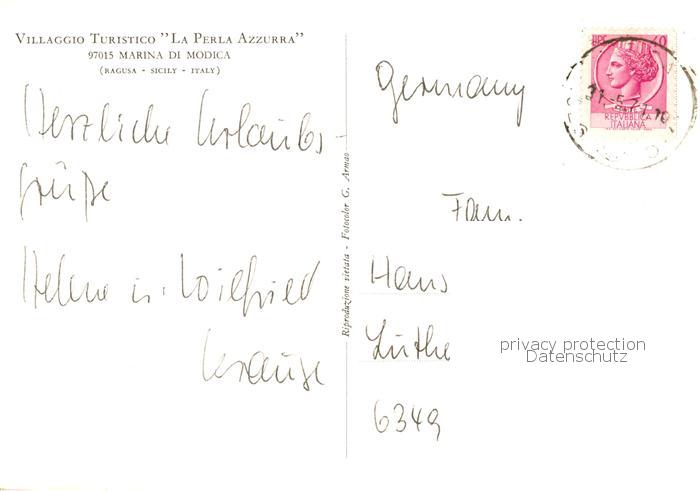 Villaggio Turistico "La Perla Azzurra"
97015 MARINA DI MODICA
(RAGUSA - SICILY - ITALY)
Herzliche Urlaubs-
grüße
Helene u. Wilfried
Krauze
Riproduzione vietata - Fotocolor G. Armao
Germany
Fam.
Hans
Luthe
6349
privacy protection
Datenschutz
REPVBBLICA
ITALIANA